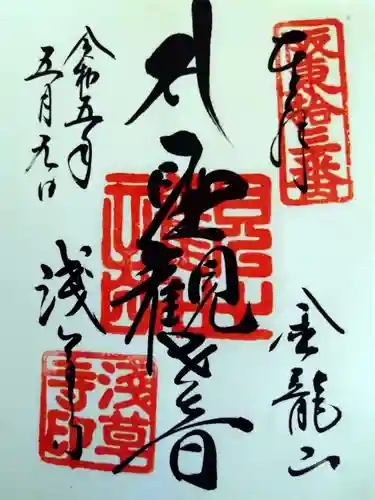 奉拝
坂東拾三番
金龍山
聖観世音
令和五年
五月九日
浅草寺
浅草寺印